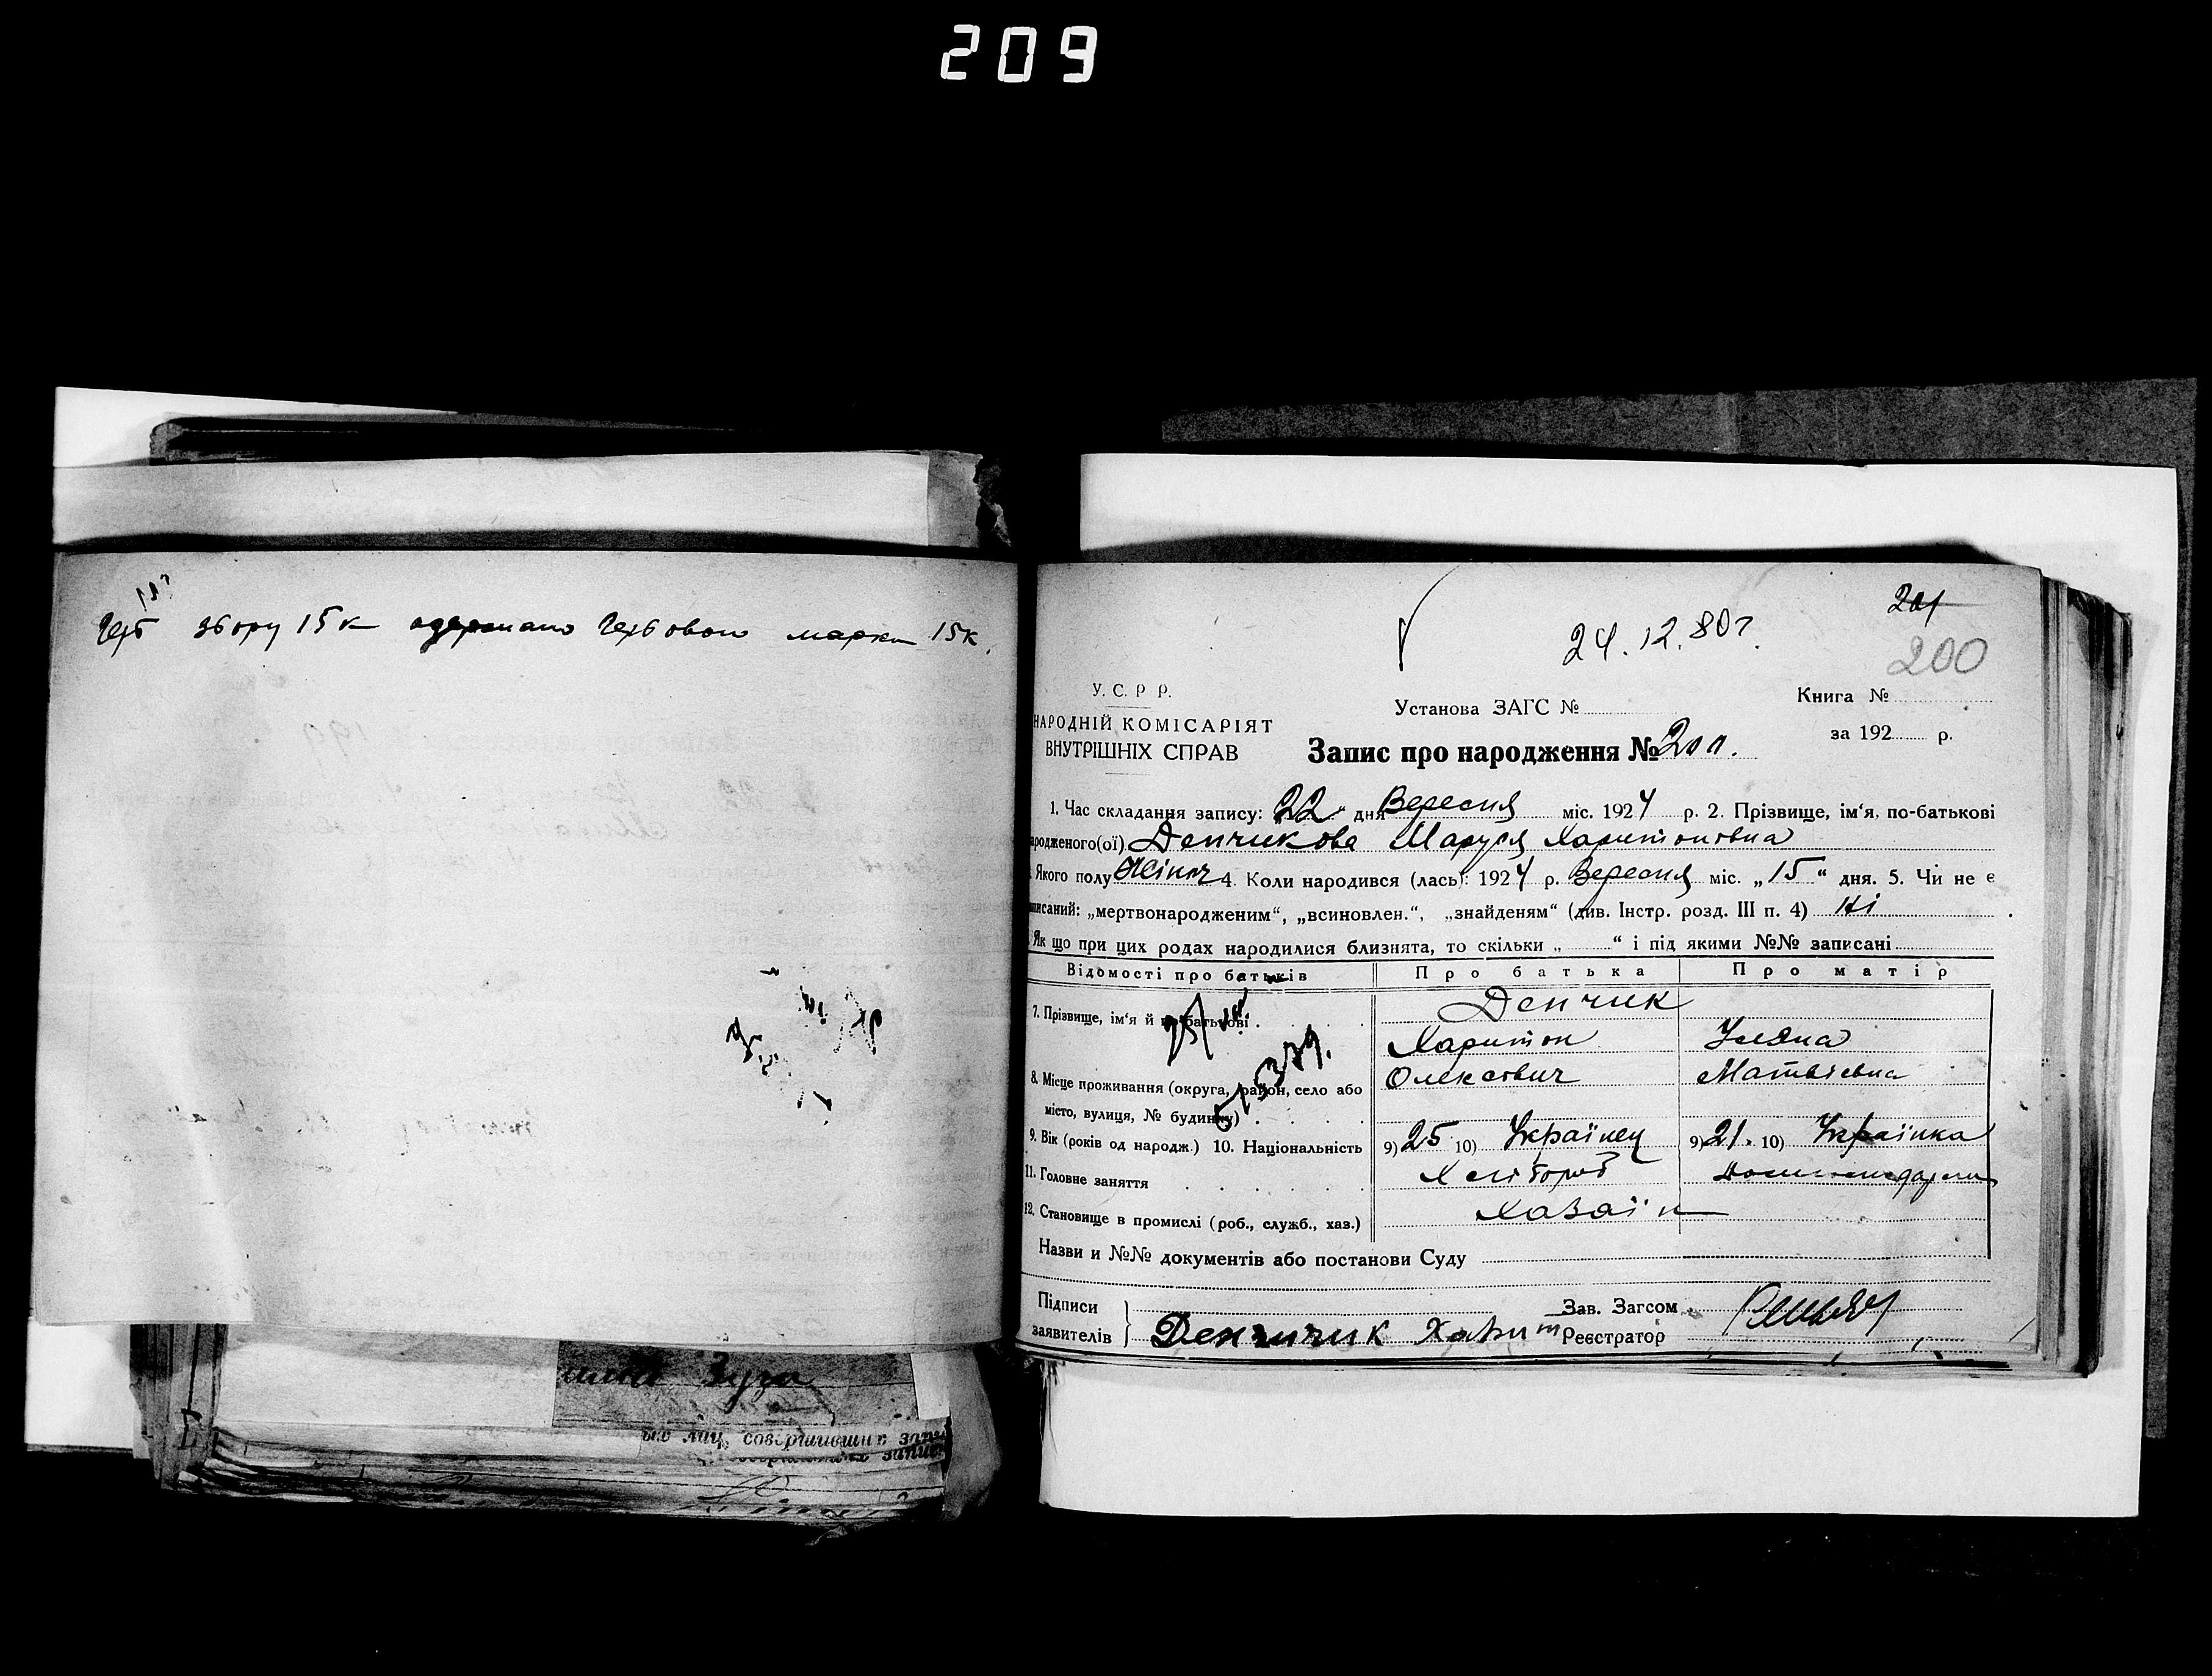 209
збору 15 к одержано Гербовою марки 15к.
24. 12. 80г.
201
200
У. С. Р. Р.
НАРОДНІЙ КОМІСАРІЯТ
ВНУТРІШНІХ СПРАВ
Установа ЗАГС №
Книга №
за 192 р.
Запис про народження № 200.
1. Час складання запису: 22 дня Вересня міс. 1924 р. 2. Прізвище, ім‘я, по-батькові
ародженого(ої) Денчикова Маруся Харитоновна
Якого полу Жіноч 4. Коли народився (лась): 1924 р. Вересня міс. „15“ дня. 5. Чи не є
писаний: „мертвонародженим“, „всиновлен.“, „знайденям“ (див. Інстр. розд. III п. 4) Ні
Як що при цих родах народилися близнята, то скільки „ “ і під якими №№ записані
Відомості про батьків Про батька Про матір
7. Прізвище, ім‘я й по батькові
Денчик
Харитон Уляна
Олексович Матвієвна
8. Місце проживання (округа, район, село або
місто, вулиця, № будинку)
9. Вік (років од народж.) 10. Національність 9) 25 10) Українец 9) 21. 10) Українка
11. Головне заняття Хлібороб
12. Становище в промислі (роб., служб., хаз.) Хазаін
Назви и №№ документів або постанови Суду
Підписи
заявителів
Денчик Харит
Зав. Загсом
Реєстратор
Зуза
ых лиц, совершивших запи